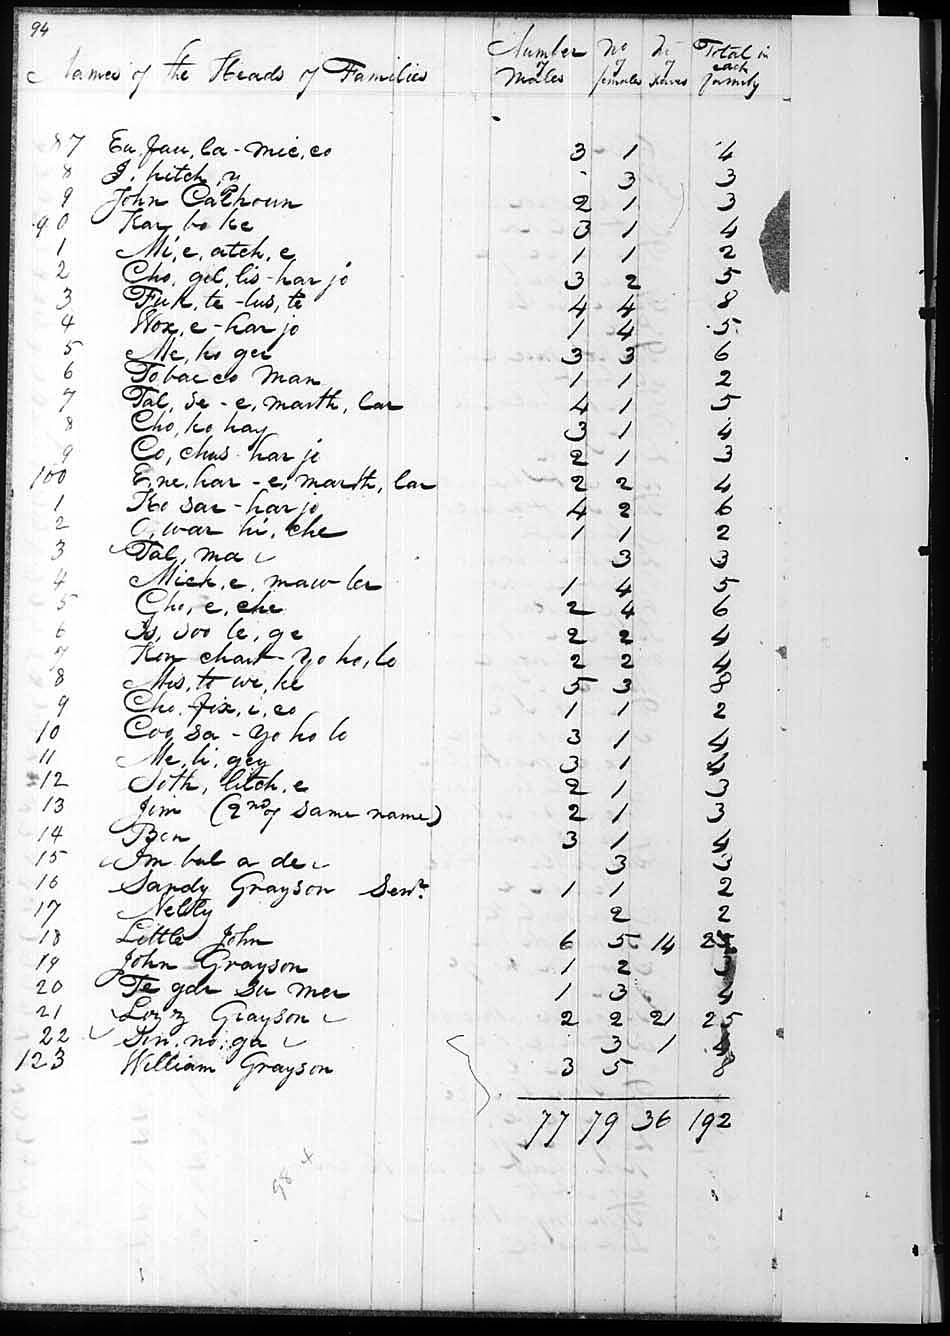 94
Names of the Heads of Families Number of Males No of females No slaves Total in each family
87 Eu, fau, la - mic, co 3 1 4
8 I, hitch, y 3 3
9 John Calhoun 2 1 3
90 Kar bo ke 3 1 4
1 Mi, e, atch, e 1 1 2
2 Cho, gel, lis - har jo 3 2 5
3 Fuk, te - lus, te 4 4 8
4 Wox, e - har jo 1 4 5
5 Me, ho gee 3 3 6
6 Tobacco Man 1 1 2
7 Tal, se - e, marth, lar 4 1 5
8 Cho, ko hay 3 1 4
9 Co, chus - har jo 2 1 3
100 E, ne, har - e, marth, lar 2 2 4
1 Ko sar - har jo 4 2 6
2 O, war hi, che 1 1 2
3 Tal, ma 3 3
4 Mick, e, maw ler 1 4 5
5 Cho, e, che 2 4 6
6 Is, soo le, ge 2 2 4
7 Kon chart - yo ho, lo 2 2 4
8 Mis, te we, ke 5 3 8
9 Cho. fix, i, co 1 1 2
10 Coo, sa - yo ho lo 3 1 4
11 Me, li, gey 3 1 4
12 Soth, litch, e 2 1 3
13 Jim (2nd of same name) 2 1 3
14 Ben 3 1 4
15 Im bul a de 3 3
16 Sandy Grayson Senr. 1 1 2
17 Nelly 2 2
18 Little John 6 5 14 25
19 John Grayson 1 2
20 Te gar su mer 1 3 4
21 Grayson 2 2 21 25
22 Sin, no, ga 3 1 4
123 William Grayson 3 5 8
77 79 36 192
98 +